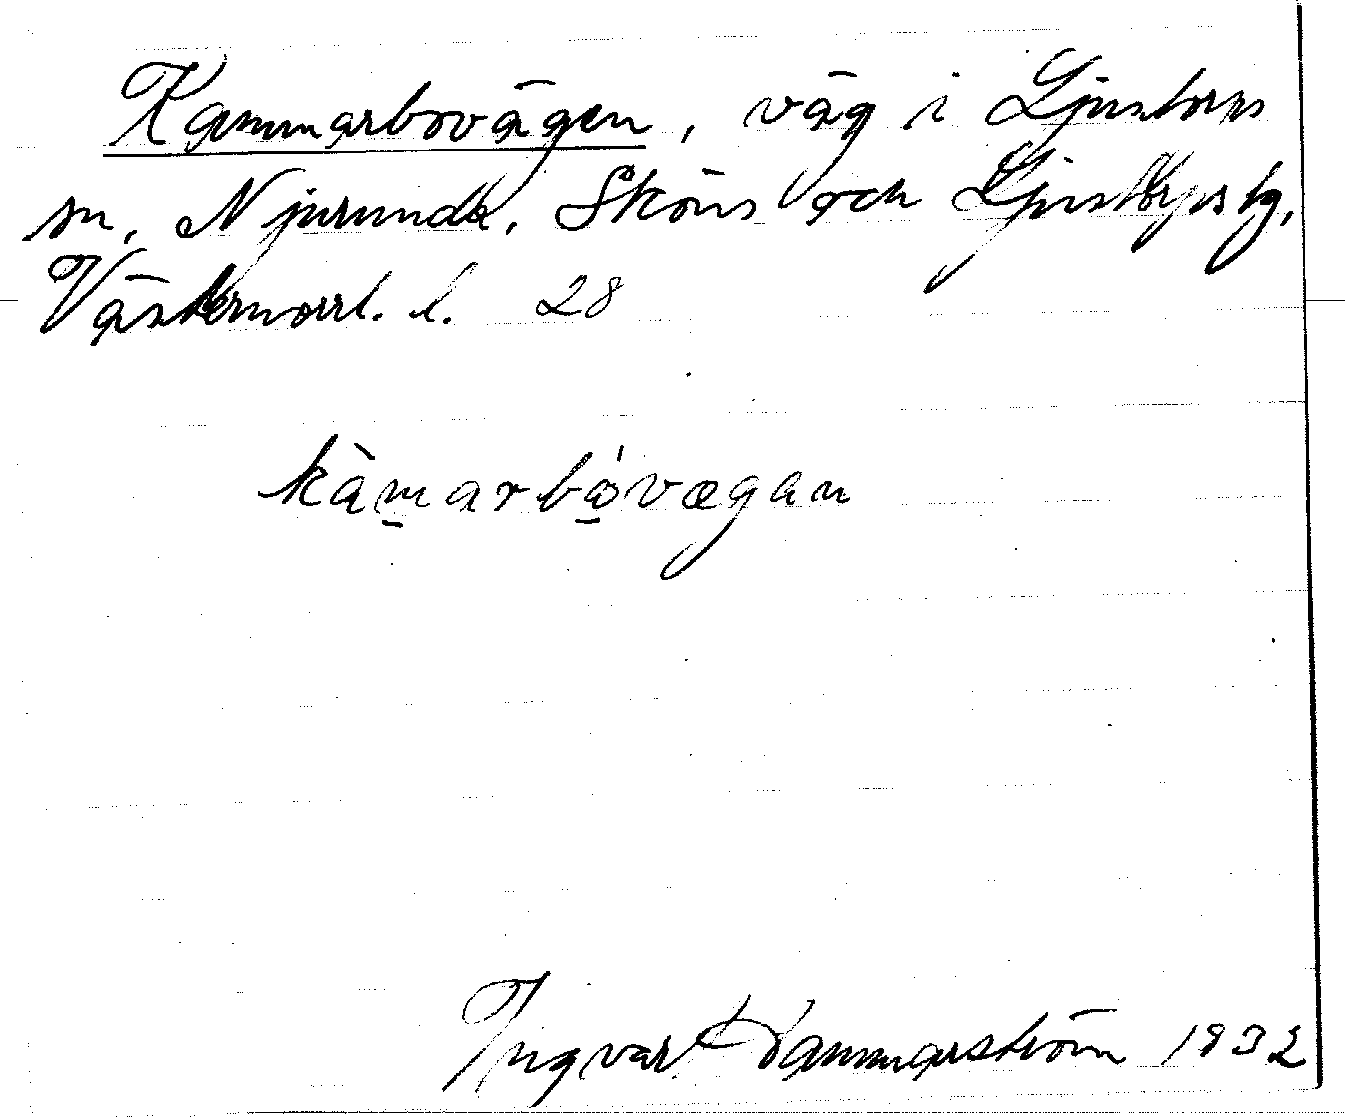 Kammarbovägen, väg i Ljustorps
sn, Njurunda, Sköns och Ljustorps tg,
Västernorrl. l. 28
kàmarbǫ́vægan
Ingvar Hammarström 1932